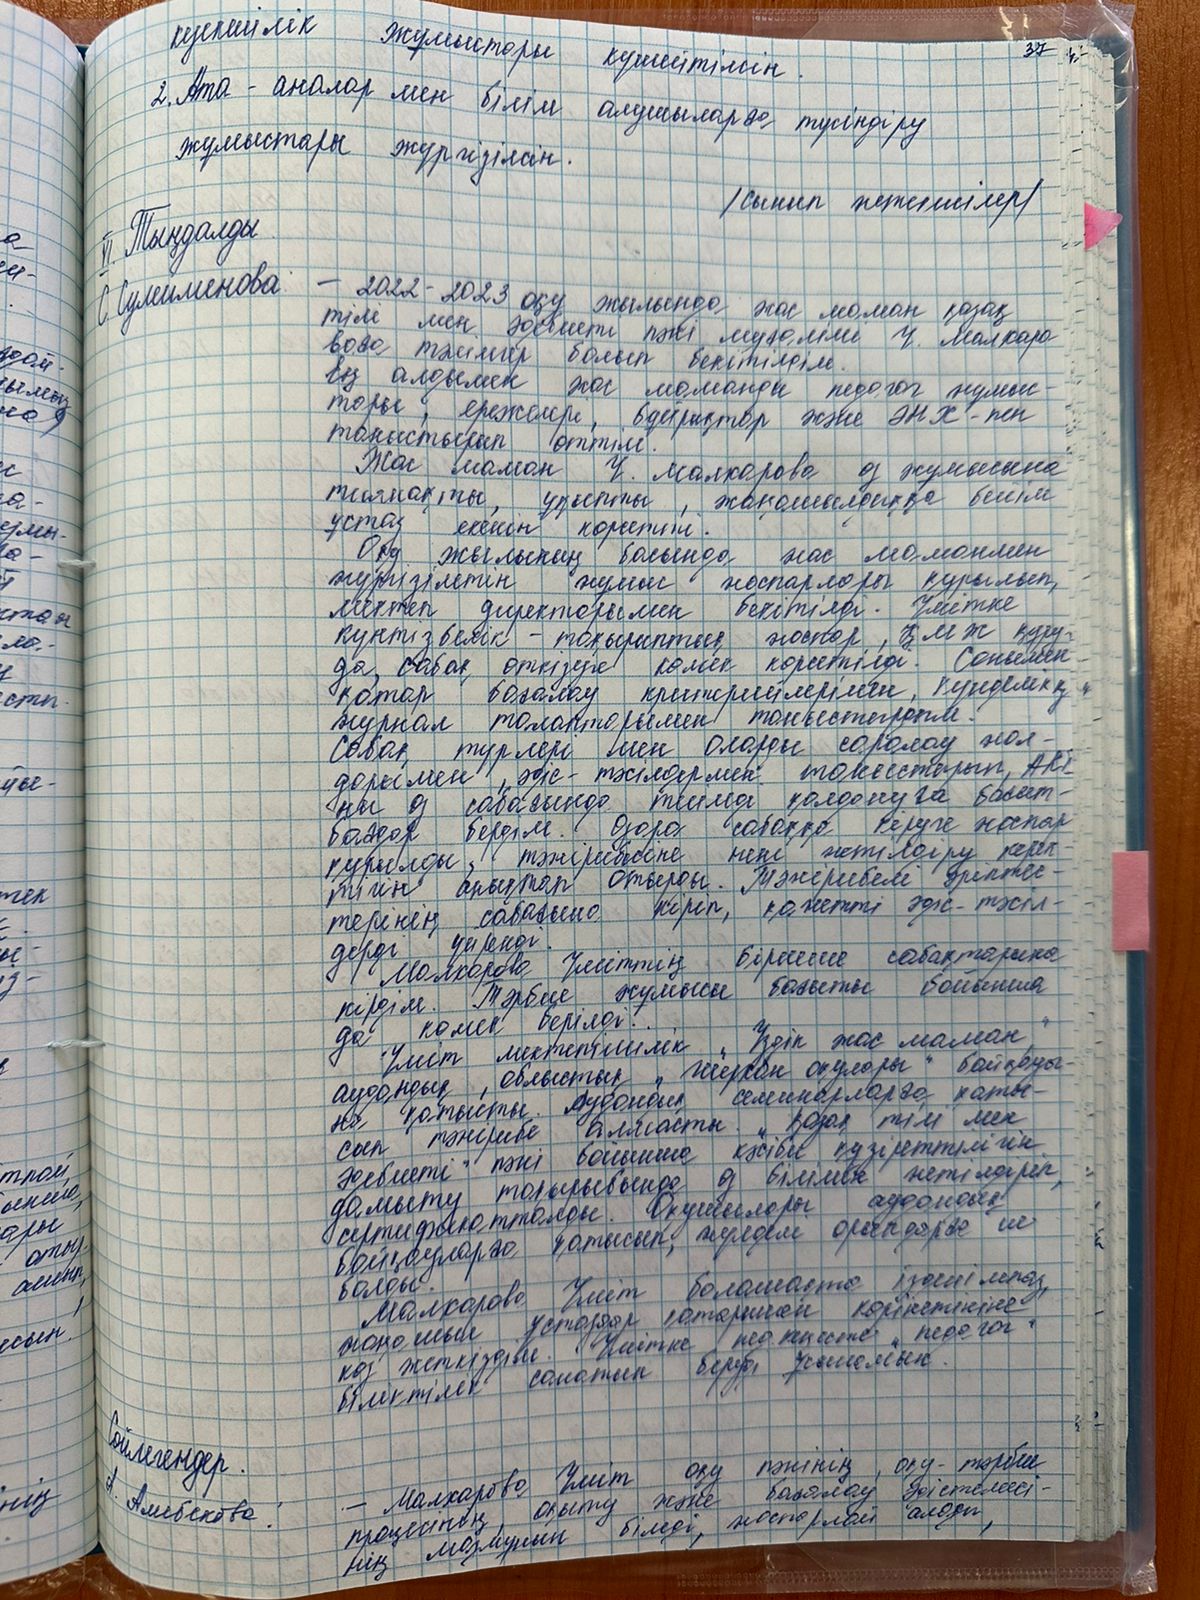 37
жұмыстары күшейтілсін.
2. Ата - аналар мен білім алушыларға түсіндіру
жұмыстары жүргізілсін.
/Сынып жетекшілер/
VI. Тыңдалды
С. Сулейменова: – 2022-2023 оқу жылында жас маман қазақ
тілі мен әдебиеті пәні мұғалімі Ү. Малкаро
ваға тәлімгер болып бекітілдім.
Ең алдымен жас маманды педагог жұмыс-
тары, ережелері, бұйрықтар және ӘНҚ-пен
таныстырып өттім.
Жас маман Ү. Малкарова өз жұмысына
тиянақты, ұқыпты, жаңашылдыққа бейім
ұстаз екенін көрсетті.
Оқу жылының басында жас маманмен
жүргізілетін жұмыс жоспарлары құрылып,
мектеп директорымен бекітілді. Үмітке
күнтізбелік - тақырыптық жоспар, ҚМЖ құру-
да, сабақ өткізуде көмек көрсетілді. Сонымен
қатар бағалау критерийлерімен, Күнделік.kz"
журнал талаптарымен таныстырдым.
Сабақ түрлері мен оларды саралау жол-
дарымен, әдіс-тәсілдермен таныстырып, АКТ-
ны өз сабағында тиімді қолдануға бағыт-
бағдар бердім. Өзара сабаққа кіруге жоспар
құрылды, тәжірибесіне нені жетілдіру керек-
тігін анықтап отырды. Тәжірибелі әріптес-
терінің сабағына кіріп, қажетті әдіс-тәсіл-
дерді үйренді.
Малкарова Үміттің бірнеше сабақтарына
кірдім. Тәрбие жұмысы бағыты бойынша
да көмек берілді.
Үміт мектепішілік „Үздік жас маман",
аудандық, облыстық оқулары" байқауы-
на қатысты. Аудандық семинарларға қаты-
сып тәжірибе алмасты. „Қазақ тілі мен
әдебиеті" пәні бойынша кәсіби құзіреттілігін
дамыту тақырыбында өз білімін жетілдіріп,
сертификатталды. Оқушылары аудандық
байқауларға қатысып, жүлделі орындарға ие
болды.
Малкарова Үміт болашақта ізденімпаз,
жаңашыл ұстаздар қатарынан көрінетініне
көз жеткіздім. Үмітке „педагог"
біліктілік санатын беруді ұсынамын.
Сөйлегендер.
А. Алибекова: – Малкарова Үміт оқу пәнінің, оқу-тәрбие
процестің, оқыту және бағалау әдістемесі-
нің мазмұнын біледі, жоспарлай алады,